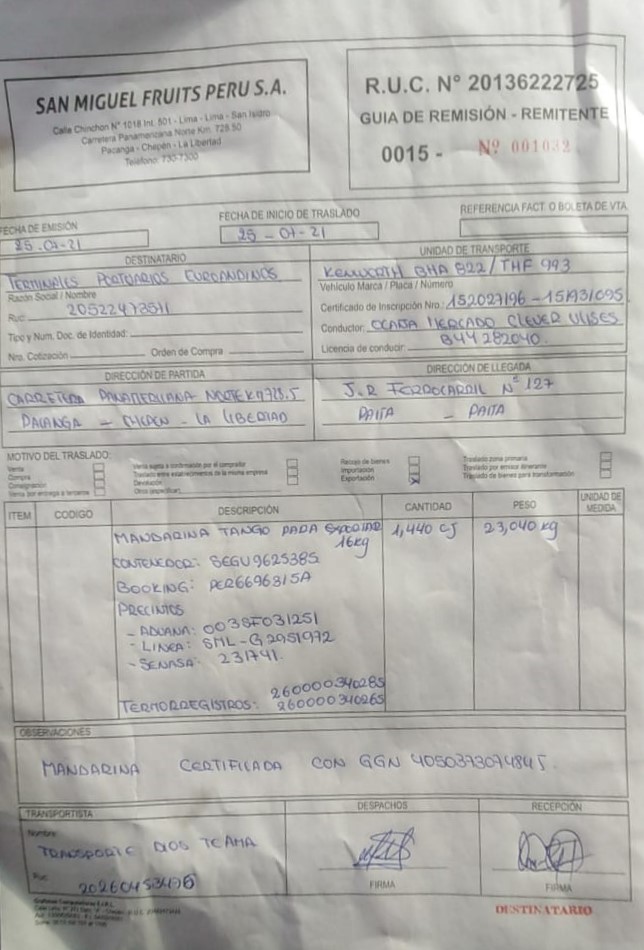 SAN MIGUEL FRUITS PERU S.A.
Calle Chinchon N° 1018 Int. 501 - Lima - Lima - San Isidro
Carretera Panamericana Norte Km. 728.50
Pacanga - Chepén - La Libertad
Teléfono: 730-7300
R.U.C. N° 20136222725
GUIA DE REMISIÓN - REMITENTE
0015 - Nº 001032
FECHA DE EMISIÓN
25-07-21
FECHA DE INICIO DE TRASLADO
25-07-21
REFERENCIA FACT. O BOLETA DE VTA.
DESTINATARIO
TERMINALES PORTUARIOS EUROANDINOS
Razón Social / Nombre
Ruc: 20522473511
Tipo y Num. Doc. de Identidad:
Nro. Cotización: Orden de Compra
UNIDAD DE TRANSPORTE
KENWORTH BHA 822/THF 993
Vehículo Marca / Placa / Número
Certificado de Inscripción Nro.: 152027196 - 151931095
Conductor: OCAÑA MERCADO CLEVER ULISES
Licencia de conducir: B44282040.
DIRECCIÓN DE PARTIDA
CARRETERA PANAMERICANA NORTE KM 728.5
PACANGA - CHEPEN - LA LIBERTAD
DIRECCIÓN DE LLEGADA
J.R FERROCARRIL N° 127
PAITA - PAITA
MOTIVO DEL TRASLADO:
Venta
Compra
Consignación
Venta por entrega a terceros
Venta sujeta a confirmación por el comprador
Traslado entre establecimientos de la misma empresa
Devolución
Otros (especificar)
Recojo de bienes
Importación
Exportación X
Traslado zona primaria
Traslado por emisor itinerante
Traslado de bienes para transformación
ITEM CODIGO DESCRIPCIÓN CANTIDAD PESO UNIDAD DE MEDIDA
MANDARINA TANGO PARA EXPORTAR 1,440 CJ 23,040 kg
16kg
CONTENEDOR: SEGU9625385
BOOKING: PER669681SA
PRECINTOS
- ADUANA: 0038F031251
- LINEA: SML-G2951972
- SENASA: 231741.
TERMORREGISTROS: 260000340285
260000340265
OBSERVACIONES
MANDARINA CERTIFICADA CON GGN 4050373074845.
TRANSPORTISTA
Nombre:
TRANSPORTE DIOS TE AMA
Ruc: 20260453476
DESPACHOS
FIRMA
RECEPCIÓN
FIRMA
DESTINATARIO